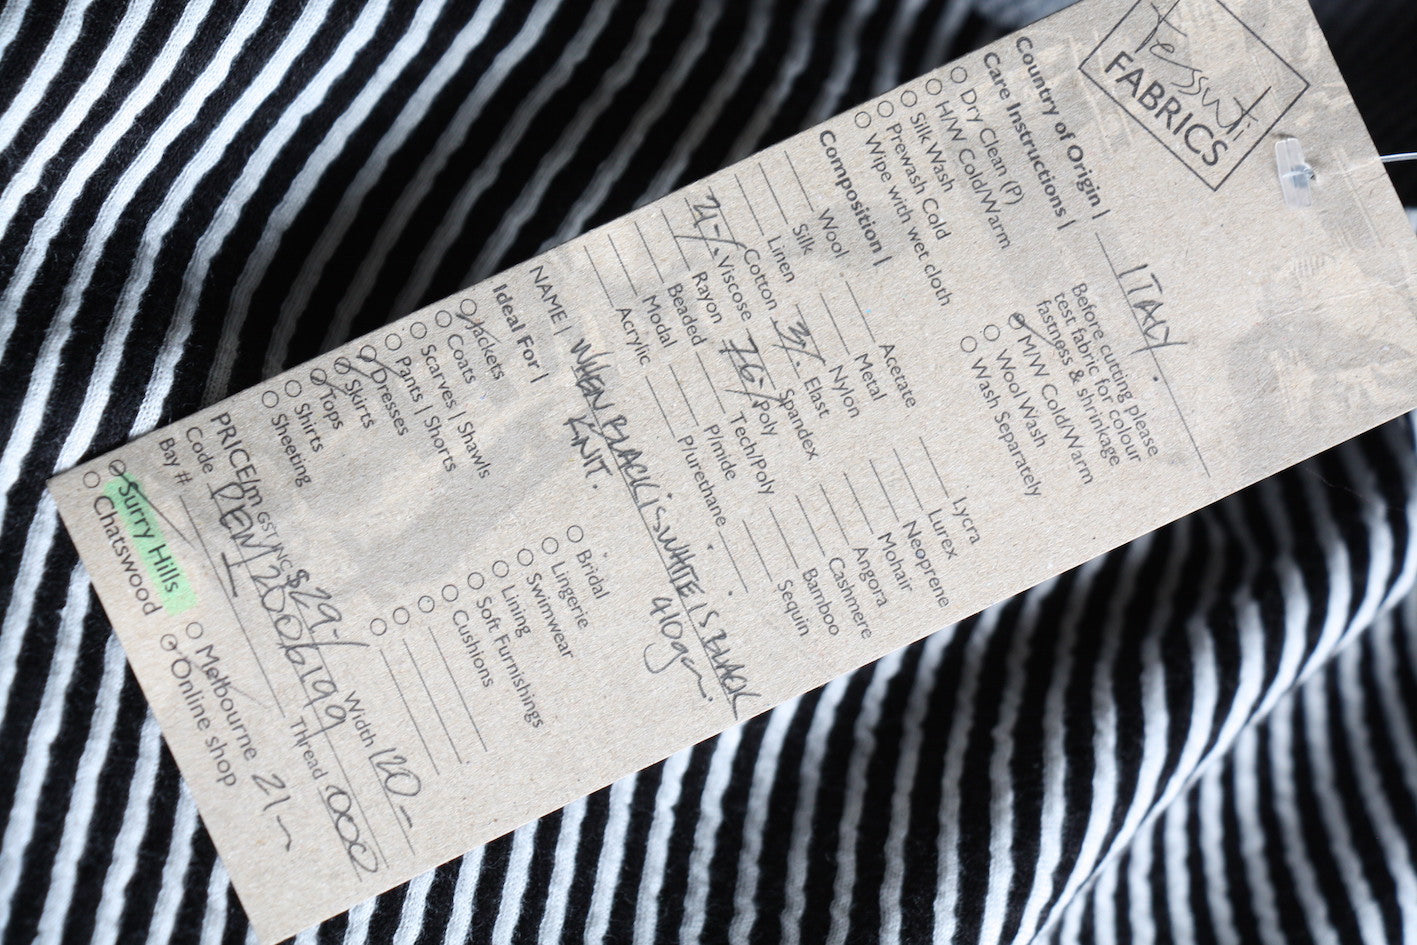 Tessuti
FABRICS
Country of Origin | ITALY.
Care Instructions |
Dry Clean (P)
H/W Cold/Warm
Silk Wash
Prewash Cold
Wipe with wet cloth
Before cutting please
test fabric for colour
fastness & shrinkage
M/W Cold/Warm
Wool Wash
Wash Separately
Composition |
Wool
Silk
Linen
Cotton
21-/. Viscose
Rayon
Beaded
Modal
Acrylic
Acetate
Metal
Nylon
Elast
3-/. Spandex
76-/. Poly
Tech/Poly
P/mide
P/urethane
Lycra
Lurex
Neoprene
Mohair
Angora
Cashmere
Bamboo
Sequin
NAME | WHEN BLACK IS WHITE IS BLACK
KNIT. 410gm.
Ideal For |
Jackets
Coats
Scarves | Shawls
Pants | Shorts
Dresses
Skirts
Tops
Shirts
Sheeting
Bridal
Lingerie
Swimwear
Lining
Soft Furnishings
Cushions
PRICE/m GST INC $29-/ Width 120-
Code DEW12006199 Thread 000
Bay #
Surry Hills
Chatswood
Melbourne
Online shop 21